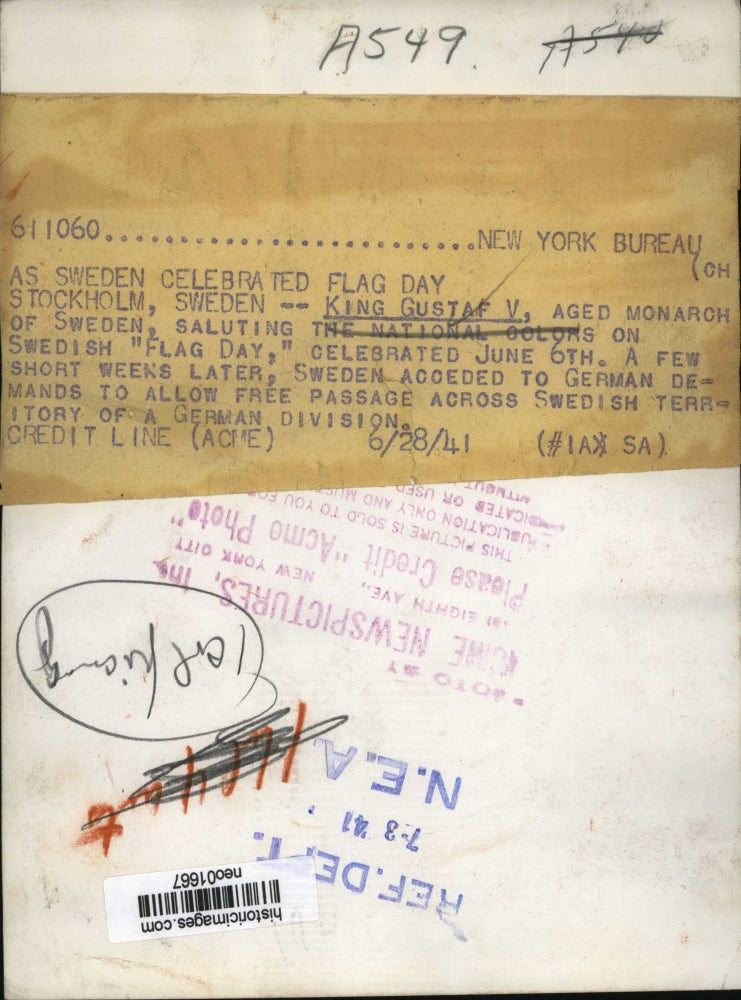 A549. A540
611060..............................NEW YORK BUREAU
(CH
AS SWEDEN CELEBRATED FLAG DAY
STOCKHOLM, SWEDEN -- KING GUSTAF V, AGED MONARCH
OF SWEDEN, SALUTING THE NATIONAL COLORS ON
SWEDISH "FLAG DAY," CELEBRATED JUNE 6TH. A FEW
SHORT WEEKS LATER, SWEDEN ACCEDED TO GERMAN DE-
MANDS TO ALLOW FREE PASSAGE ACROSS SWEDISH TERR-
ITORY OF A GERMAN DIVISION.
CREDIT LINE (ACME) 6/28/41 (#IAX SA)
REF. DEPT.
7-3 '41
N.E.A.
PHOTO BY
ACME NEWSPICTURES, Inc
461 EIGHTH AVE., NEW YORK CITY
Please Credit "Acme Photo"
THIS PICTURE IS SOLD TO YOU FOR
PUBLICATION ONLY AND MUST
OR USED
WITHOUT
historicimages.com
neo01667